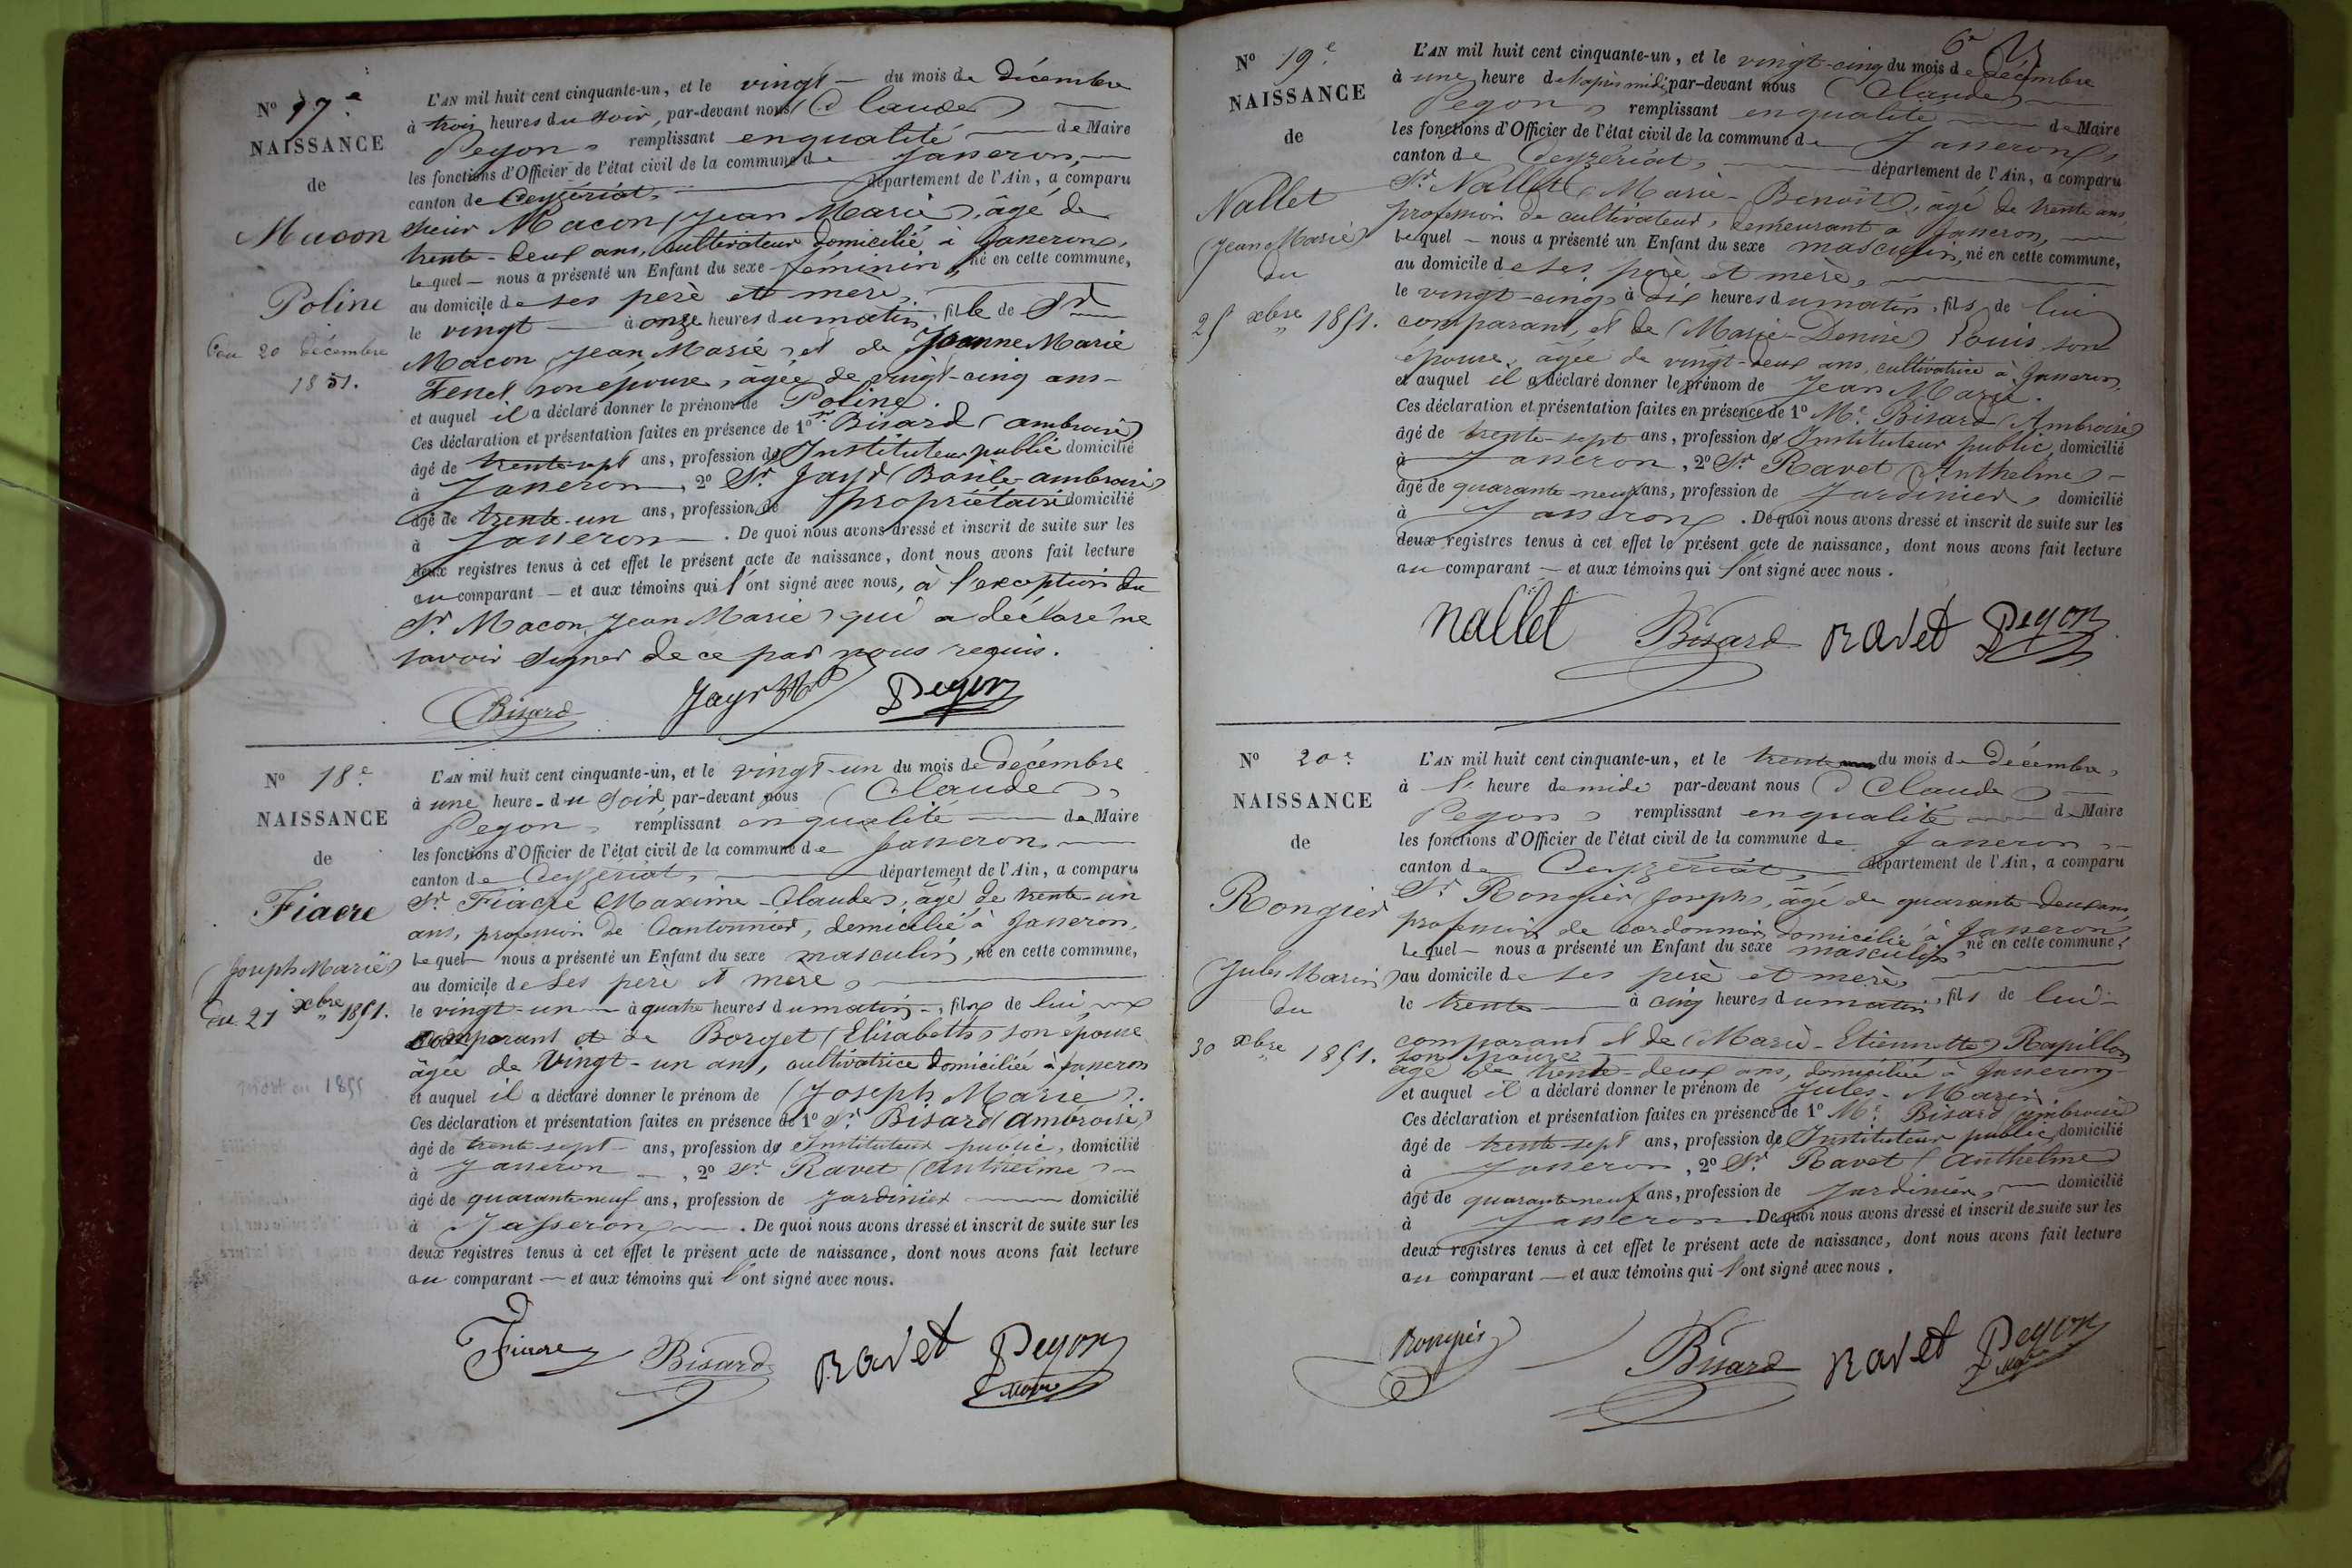 N° 17.e
NAISSANCE
de
Macon
Poline
du 20 décembre
1851.
L'AN mil huit cent cinquante-un, et le vingt — du mois de décembre
à trois heures du soir, par-devant nous (Claude)
Pegon, remplissant en qualité — de Maire
les fonctions d'Officier de l'état civil de la commune de Jasseron,
canton de Ceyzériat, — département de l'Ain, a comparu
sieur Macon (Jean Marie), âgé de
trente-deux ans, cultivateur domicilié à Jasseron,
lequel — nous a présenté un Enfant du sexe féminin, né en cette commune,
au domicile de ses père et mère,
le vingt — à onze heures du matin, fille de Sr
Macon, Jean Marie, et de Jeanne Marie
Fenet son épouse, âgée de vingt-cinq ans —
et auquel il a déclaré donner le prénom de Poline.
Ces déclaration et présentation faites en présence de 1° Sr Bisard (ambroise)
âgé de trente-sept ans, profession de Instituteur public domicilié
à Jasseron, 2° Sr. Jayr (Basile-ambroise)
âgé de trente-un ans, profession de propriétaire domicilié
à Jasseron — . De quoi nous avons dressé et inscrit de suite sur les
deux registres tenus à cet effet le présent acte de naissance, dont nous avons fait lecture
au comparant — et aux témoins qui l'ont signé avec nous, à l'exception du
Sr. Macon, Jean Marie, qui a déclaré ne
savoir signer de ce par nous requis.
Bisard Jayr Pegon
N° 18.e
NAISSANCE
de
Fiacre
(Joseph Marie)
du 21 xbre 1851.
L'AN mil huit cent cinquante-un, et le vingt-un du mois de décembre
à une heure du soir, par-devant nous (Claude)
Pegon, remplissant en qualité — de Maire
les fonctions d'Officier de l'état civil de la commune de Jasseron,
canton de Ceyzériat, — département de l'Ain, a comparu
Sr. Fiacre Maxime-Claude, âgé de trente-un
ans, profession de Cantonnier, domicilié à Jasseron,
lequel — nous a présenté un Enfant du sexe masculin, né en cette commune,
au domicile de ses père et mère,
le vingt-un — à quatre heures du matin, fils de lui
comparant et de Borget (Elisabeth) son épouse
âgée de Vingt-un ans, cultivatrice domiciliée à Jasseron
et auquel il a déclaré donner le prénom de (Joseph Marie).
Ces déclaration et présentation faites en présence de 1° Sr. Bisard (Ambroise)
âgé de trente-sept ans, profession de Instituteur public, domicilié
à Jasseron —, 2° Sr. Ravet (Anthelme)
âgé de quarante neuf ans, profession de Jardinier — domicilié
à Jasseron — . De quoi nous avons dressé et inscrit de suite sur les
deux registres tenus à cet effet le présent acte de naissance, dont nous avons fait lecture
au comparant — et aux témoins qui l'ont signé avec nous.
Fiacre Bisard Ravet Pegon
maire
6e
N° 19.e
NAISSANCE
de
Nallet
(Jean Marie)
du
25 xbre 1851.
L'AN mil huit cent cinquante-un, et le vingt-cinq du mois de décembre
à une heure de l'après midi par-devant nous (Claude)
Pegon, remplissant en qualité — de Maire
les fonctions d'Officier de l'état civil de la commune de Jasseron,
canton de Ceyzériat, — département de l'Ain, a comparu
Sr. Nallet (Marie-Benoit), âgé de trente ans,
profession de cultivateur, demeurant à Jasseron,
lequel — nous a présenté un Enfant du sexe masculin, né en cette commune,
au domicile de ses père et mère,
le vingt-cinq, à dix heures du matin, fils de lui
comparant, et de (Marie-Denise) Louis son
épouse, âgée de vingt-deux ans, cultivatrice à Jasseron,
et auquel il a déclaré donner le prénom de Jean Marie.
Ces déclaration et présentation faites en présence de 1° Mr. Bisard (Ambroise)
âgé de trente-sept ans, profession de Instituteur public, domicilié
à Jasseron, 2° Sr. Ravet (Anthelme) —
âgé de quarante-neuf ans, profession de Jardinier, domicilié
à Jasseron. De quoi nous avons dressé et inscrit de suite sur les
deux registres tenus à cet effet le présent acte de naissance, dont nous avons fait lecture
au comparant — et aux témoins qui l'ont signé avec nous.
Nallet Bisard Ravet Pegon
N° 20.e
NAISSANCE
de
Rongier
(Jules Marin)
du
30 xbre 1851.
L'AN mil huit cent cinquante-un, et le trente du mois de décembre,
à l' heure de midi par-devant nous (Claude)
Pegon, remplissant en qualité — de Maire
les fonctions d'Officier de l'état civil de la commune de Jasseron —
canton de Ceyzériat, département de l'Ain, a comparu
Sr. Rongier (Joseph), âgé de quarante-deux ans,
profession de cordonnier, domicilié à Jasseron
lequel — nous a présenté un Enfant du sexe masculin, né en cette commune,
au domicile de ses père et mère,
le trente — à cinq heures du matin, fils de lui —
comparant et de (Marie-Etiennette) Rapillon
son épouse
âgé de trente-deux ans, domiciliée à Jasseron —
et auquel il a déclaré donner le prénom de Jules-Marin
Ces déclaration et présentation faites en présence de 1° Mr. Bisard (ambroise)
âgé de trente-sept ans, profession de Instituteur public, domicilié
à Jasseron, 2° Sr Ravet (Anthelme)
âgé de quarante neuf ans, profession de Jardinier, — domicilié
à Jasseron De quoi nous avons dressé et inscrit de suite sur les
deux registres tenus à cet effet le présent acte de naissance, dont nous avons fait lecture
au comparant — et aux témoins qui l'ont signé avec nous.
Rongier Bisard Ravet Pegon
maire